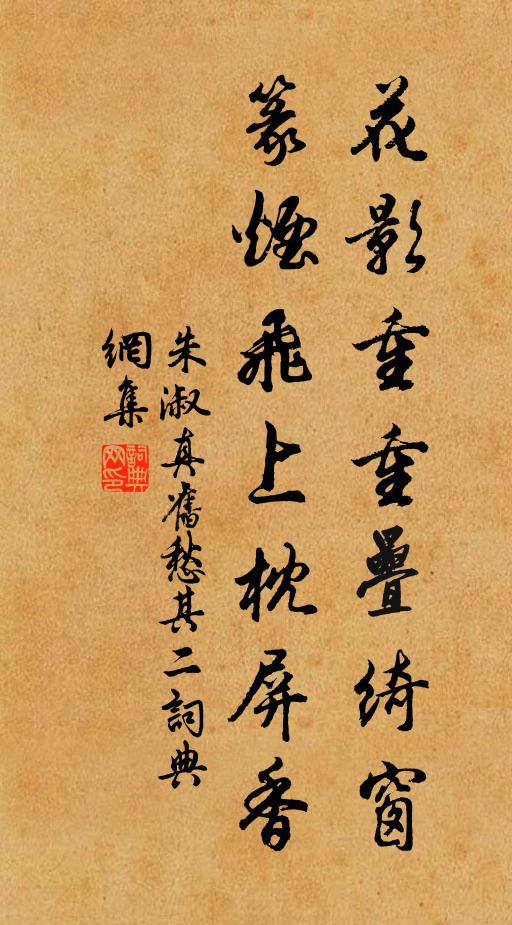 花影重重疊綺窗
篆煙飛上枕屏香
朱淑真舊愁其二詞典
網集
詞典網印